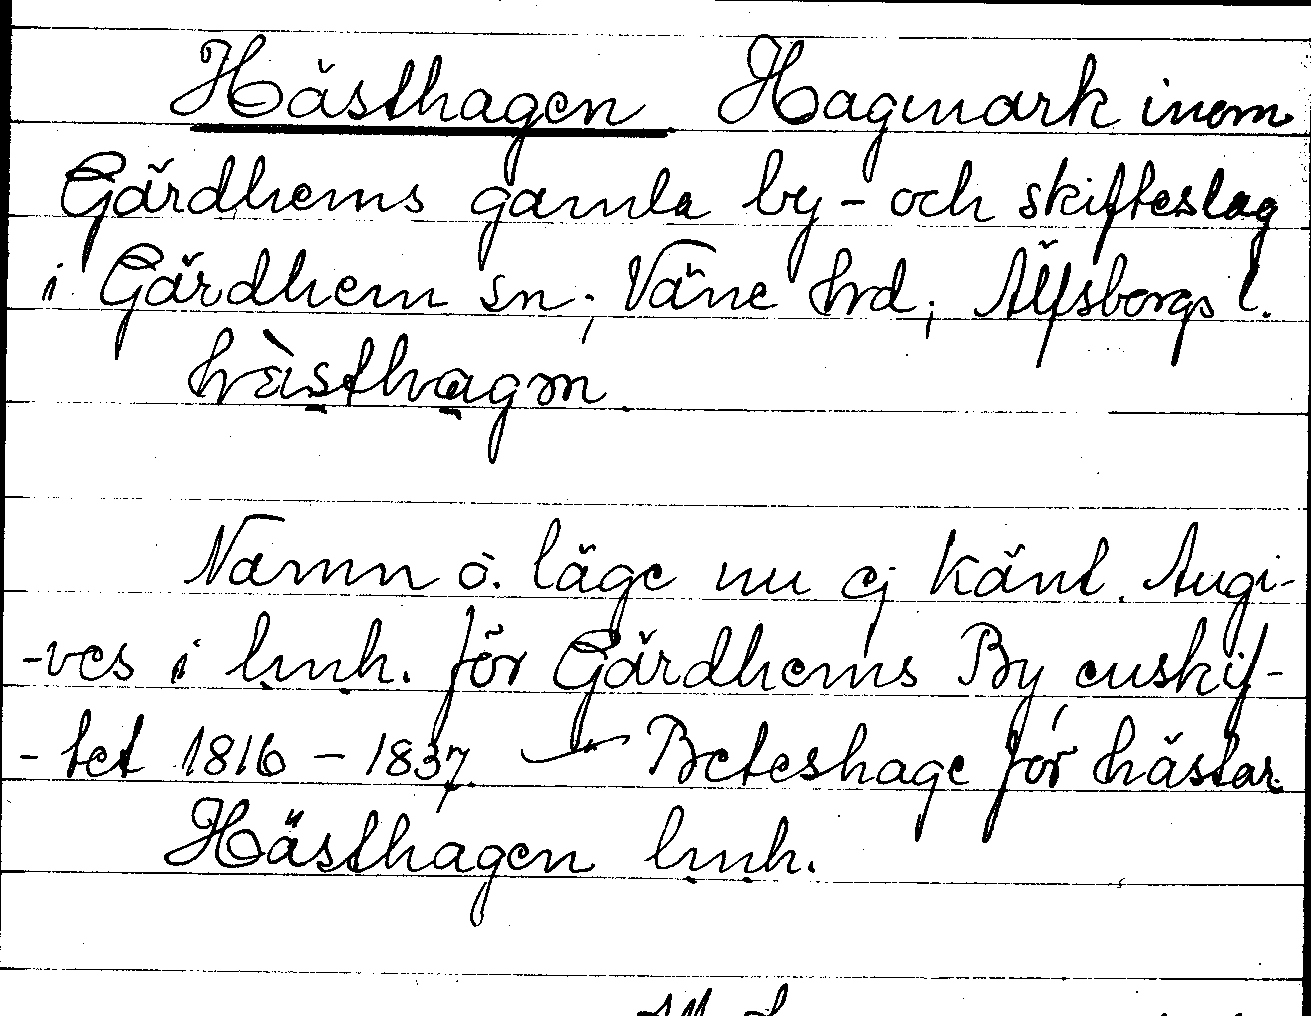 Hästhagen Hagmark inom
Gärdhems gamla by- och skifteslag
i Gärdhem sn; Väne hrd; Älfsborgs l.
hàsthagɷn
Namn o. läge nu ej känt. Angi-
-ves i lmh. för Gärdhems By enskif-
-tet 1816 - 1837. — Beteshage för hästar.
Hästhagen lmh.